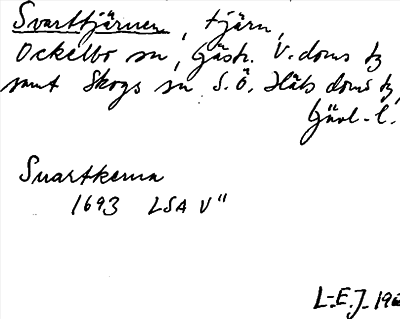 Svarttjärnen, tjärn,
Ockelbo sn, Gästr. V. doms tg
samt Skogs sn S. Ö. Häls doms tg,
Gävl. l.
Suartkerna
1693 LSA V"
L-E.J. 196